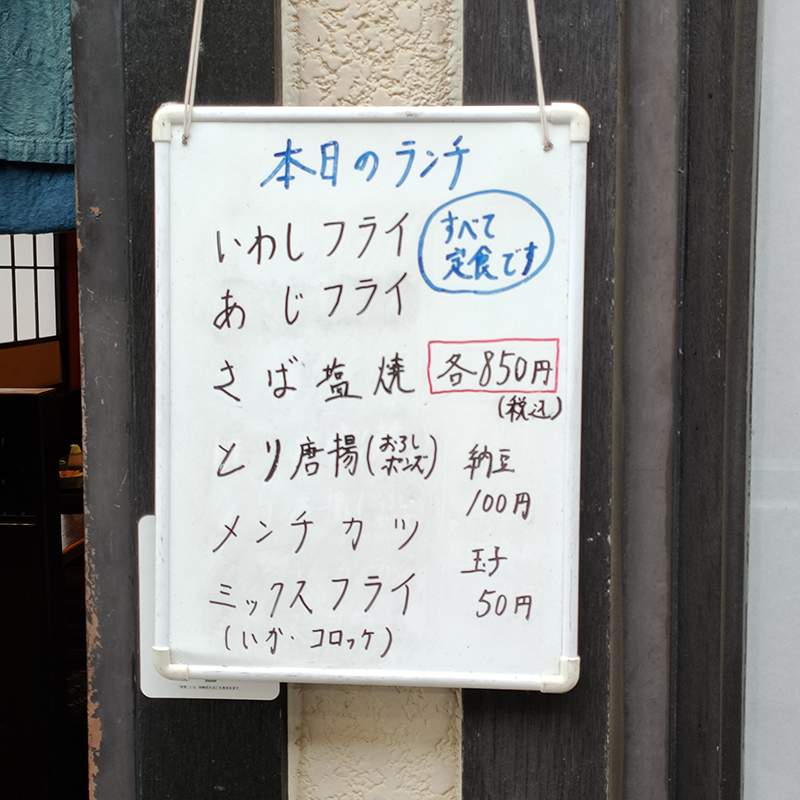 本日のランチ
いわしフライ
すべて
定食です
あじフライ
さば塩焼
各850円
(税込)
とり唐揚(おろし
ポンズ)
メンチカツ
ミックスフライ
(いか・コロッケ)
納豆
100円
玉子
50円